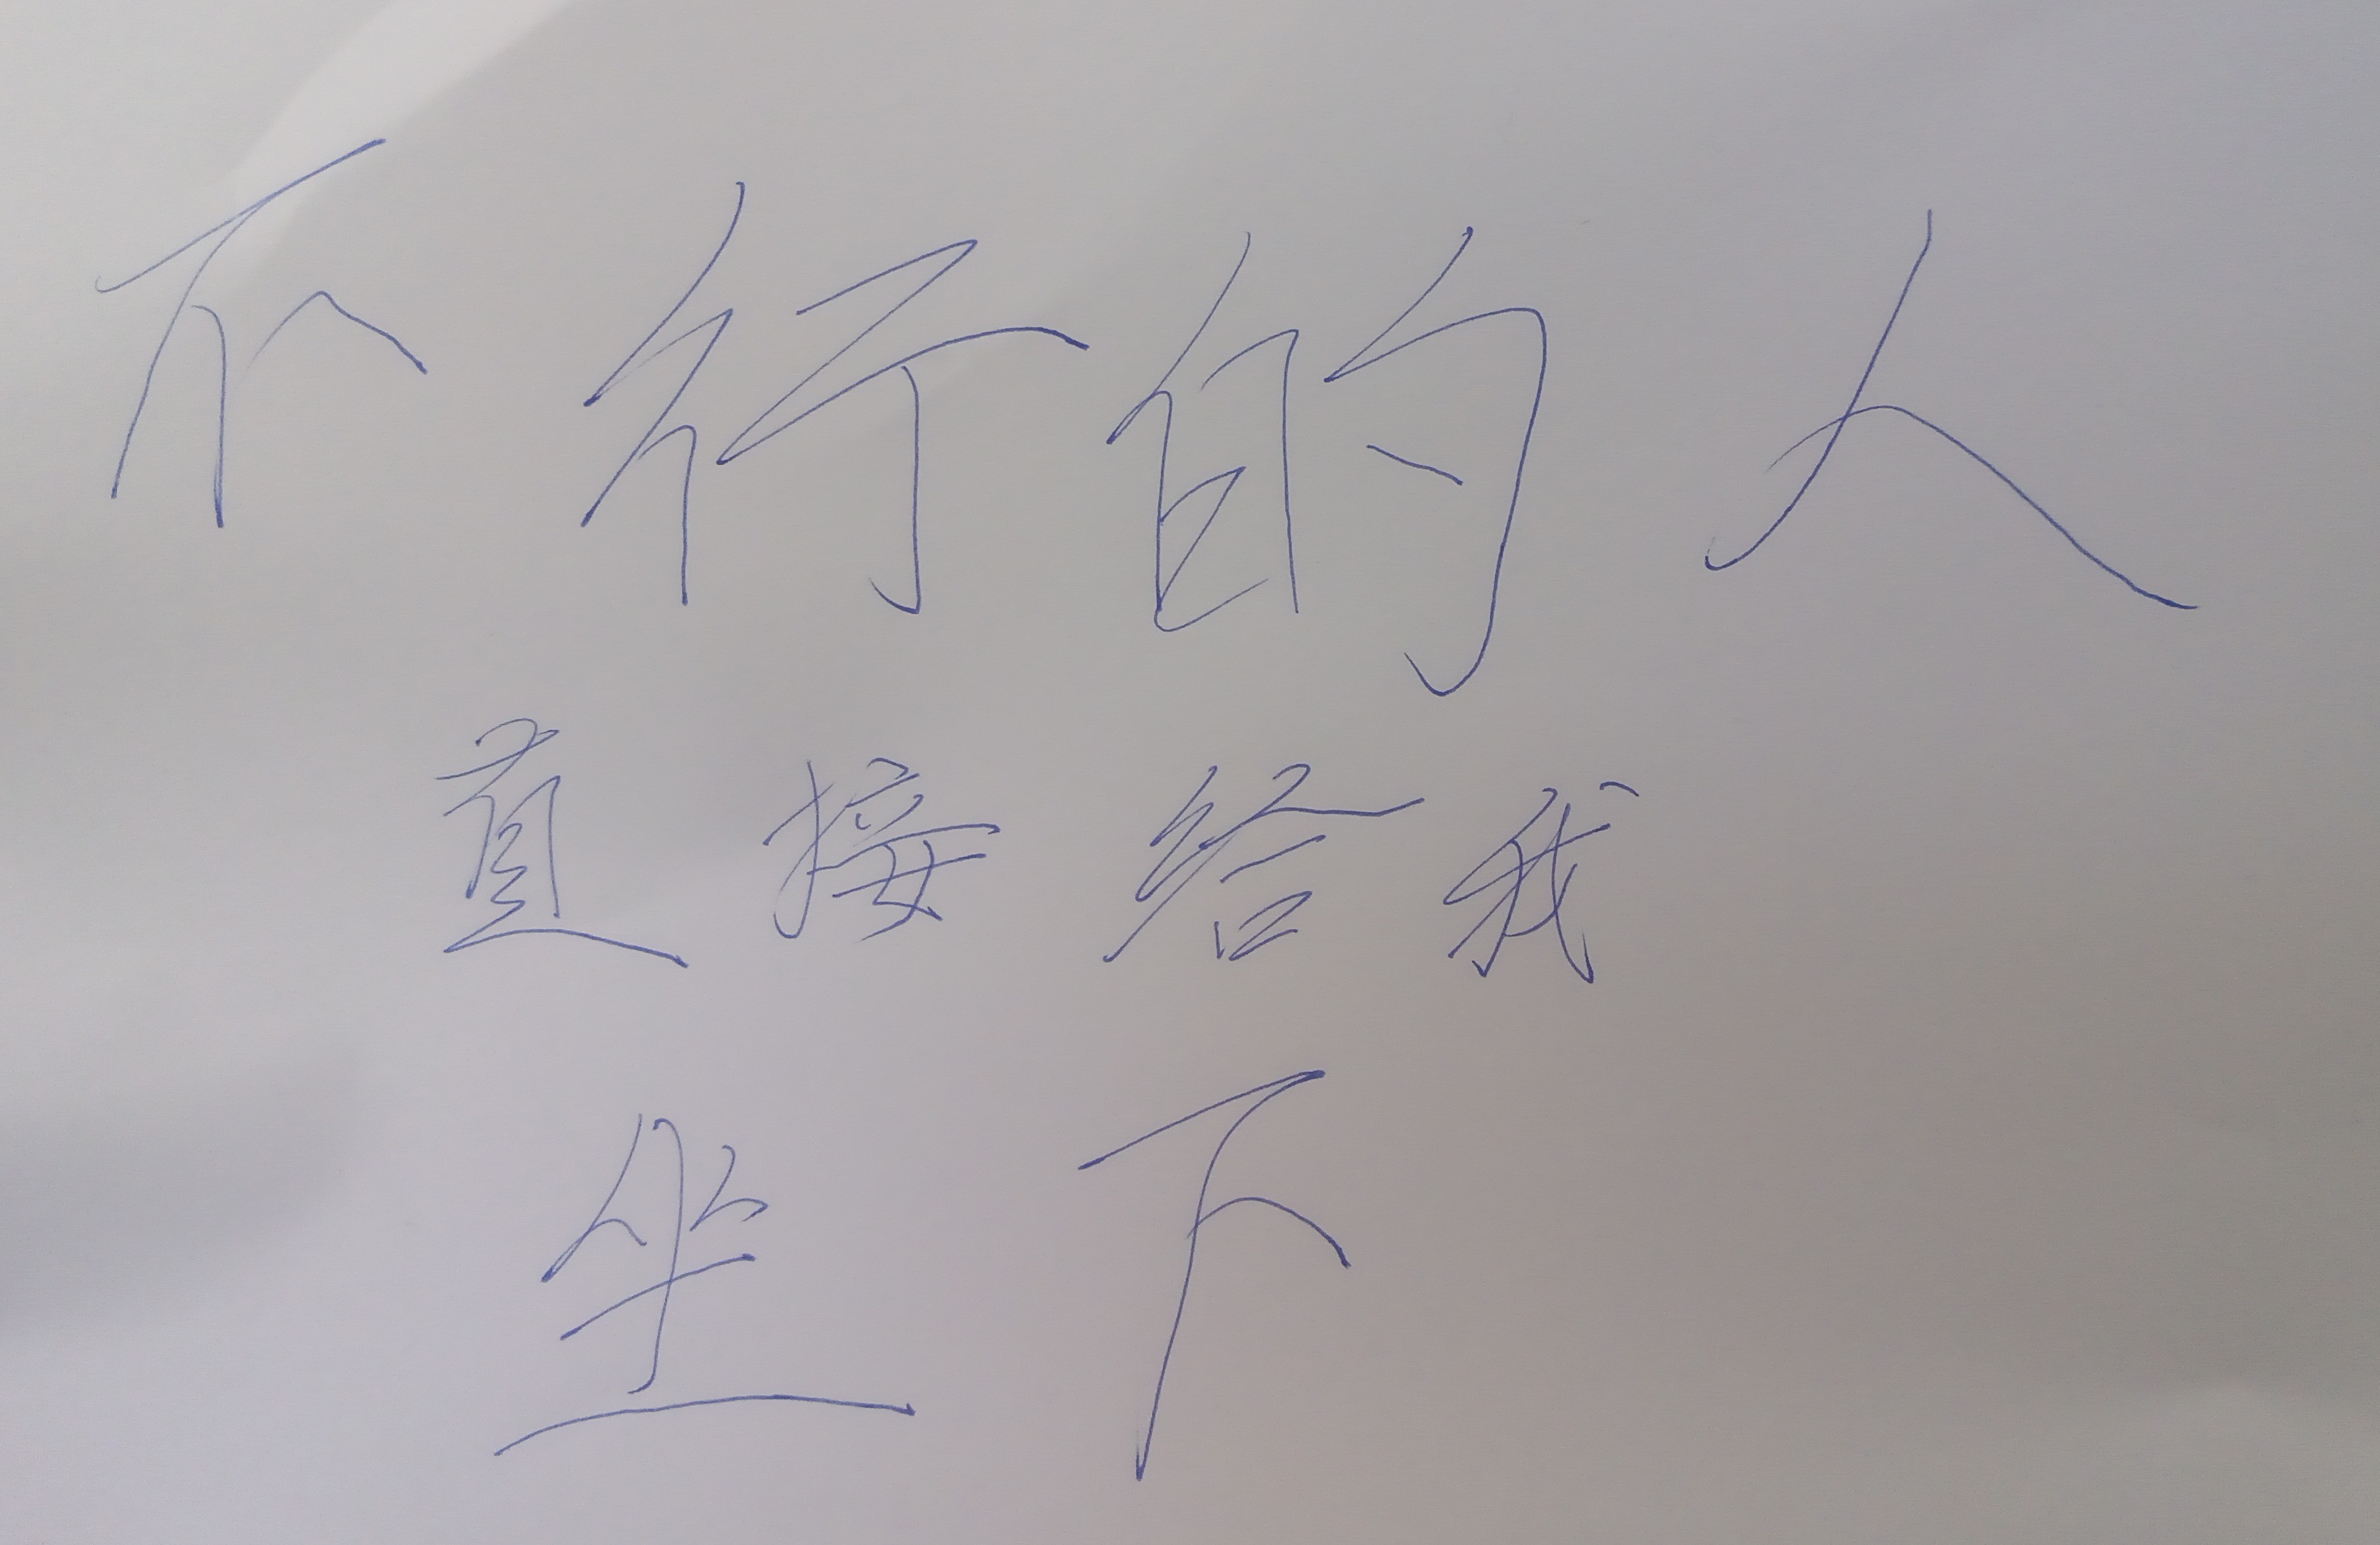 不行的人
直接给我
坐下